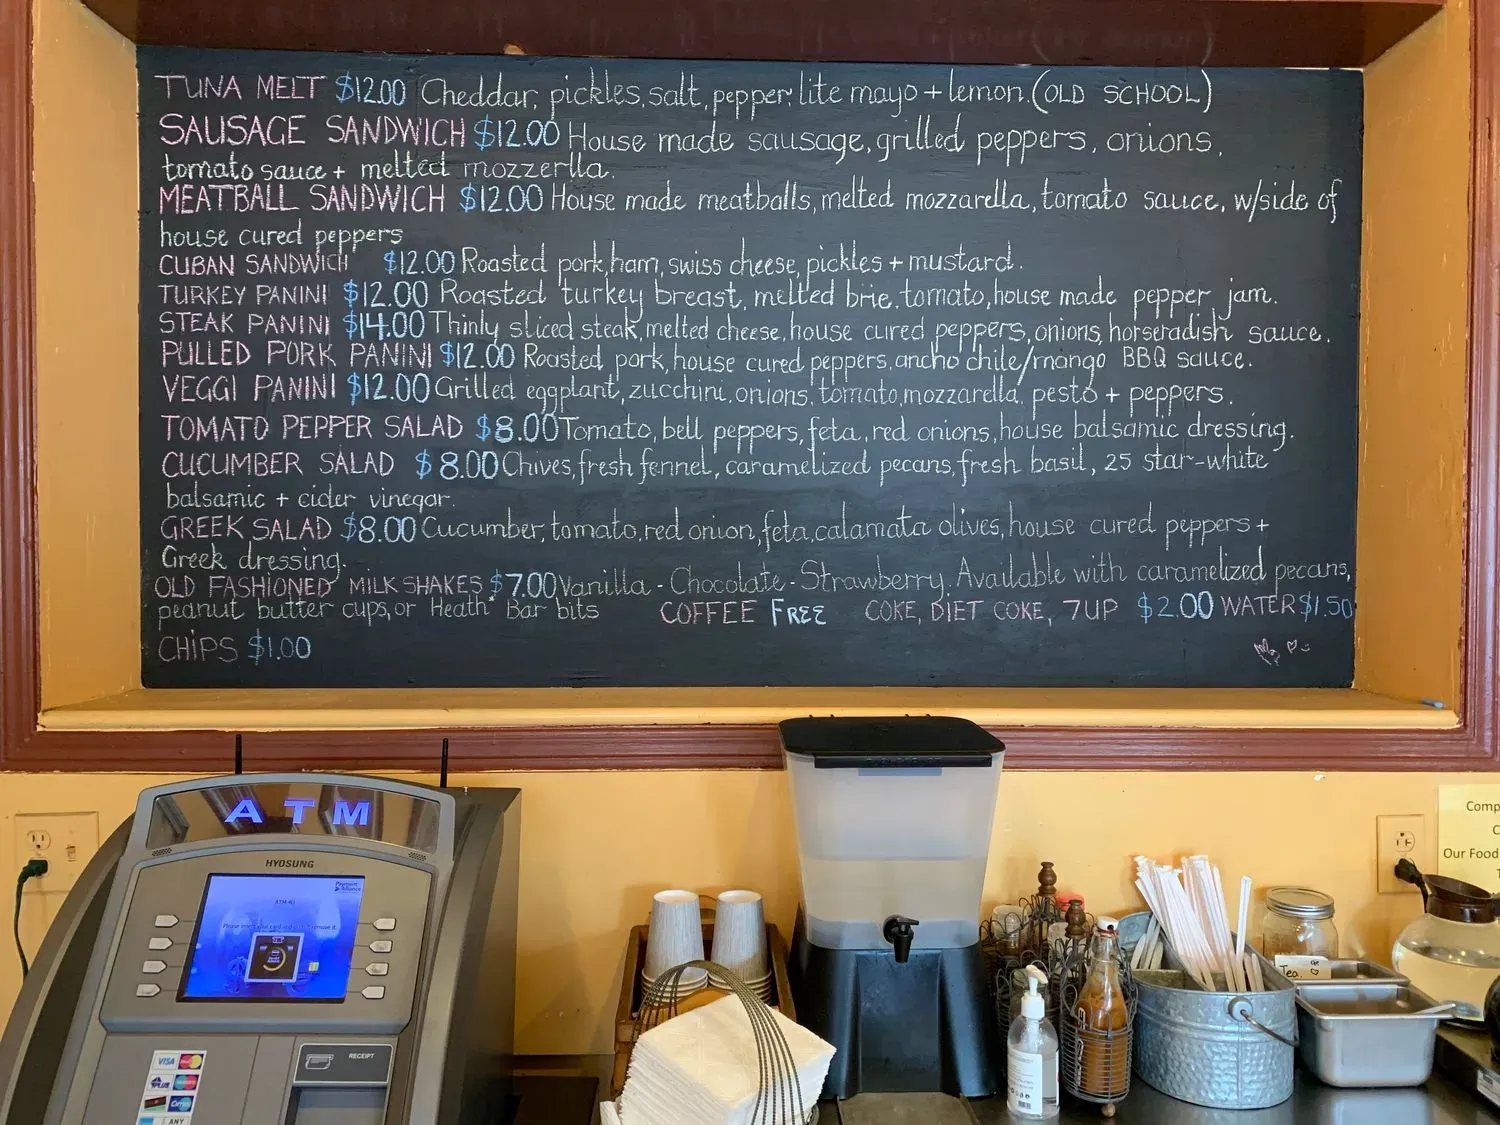 TUNA MELT $12.00 Cheddar, pickles, salt, pepper, lite mayo + lemon. (OLD SCHOOL)
SAUSAGE SANDWICH $12.00 House made sausage, grilled peppers, onions,
tomato sauce + melted mozzerlla.
MEATBALL SANDWICH $12.00 House made meatballs, melted mozzarella, tomato sauce, w/side of
house cured peppers
CUBAN SANDWICH $12.00 Roasted pork, ham, swiss cheese, pickles + mustard.
TURKEY PANINI $12.00 Roasted turkey breast, melted brie, tomato, house made pepper jam.
STEAK PANINI $14.00 Thinly sliced steak, melted cheese, house cured peppers, onions, horseradish sauce.
PULLED PORK PANINI $12.00 Roasted pork, house cured peppers, ancho chile/mango BBQ sauce.
VEGGI PANINI $12.00 Grilled eggplant, zucchini, onions, tomato, mozzarella, pesto + peppers.
TOMATO PEPPER SALAD $8.00 Tomato, bell peppers, feta, red onions, house balsamic dressing.
CUCUMBER SALAD $8.00 Chives, fresh fennel, caramelized pecans, fresh basil, 25 star-white
balsamic + cider vinegar.
GREEK SALAD $8.00 Cucumber, tomato, red onion, feta, calamata olives, house cured peppers +
Greek dressing.
OLD FASHIONED MILK SHAKES $7.00 Vanilla - Chocolate - Strawberry. Available with caramelized pecans,
peanut butter cups, or Heath Bar bits COFFEE FREE COKE, DIET COKE, 7UP $2.00 WATER $1.50
CHIPS $1.00
ATM
HYOSUNG
Payment Alliance
RECEIPT
VISA
PLUS
ANY
Tea
Comp
C
Our Food